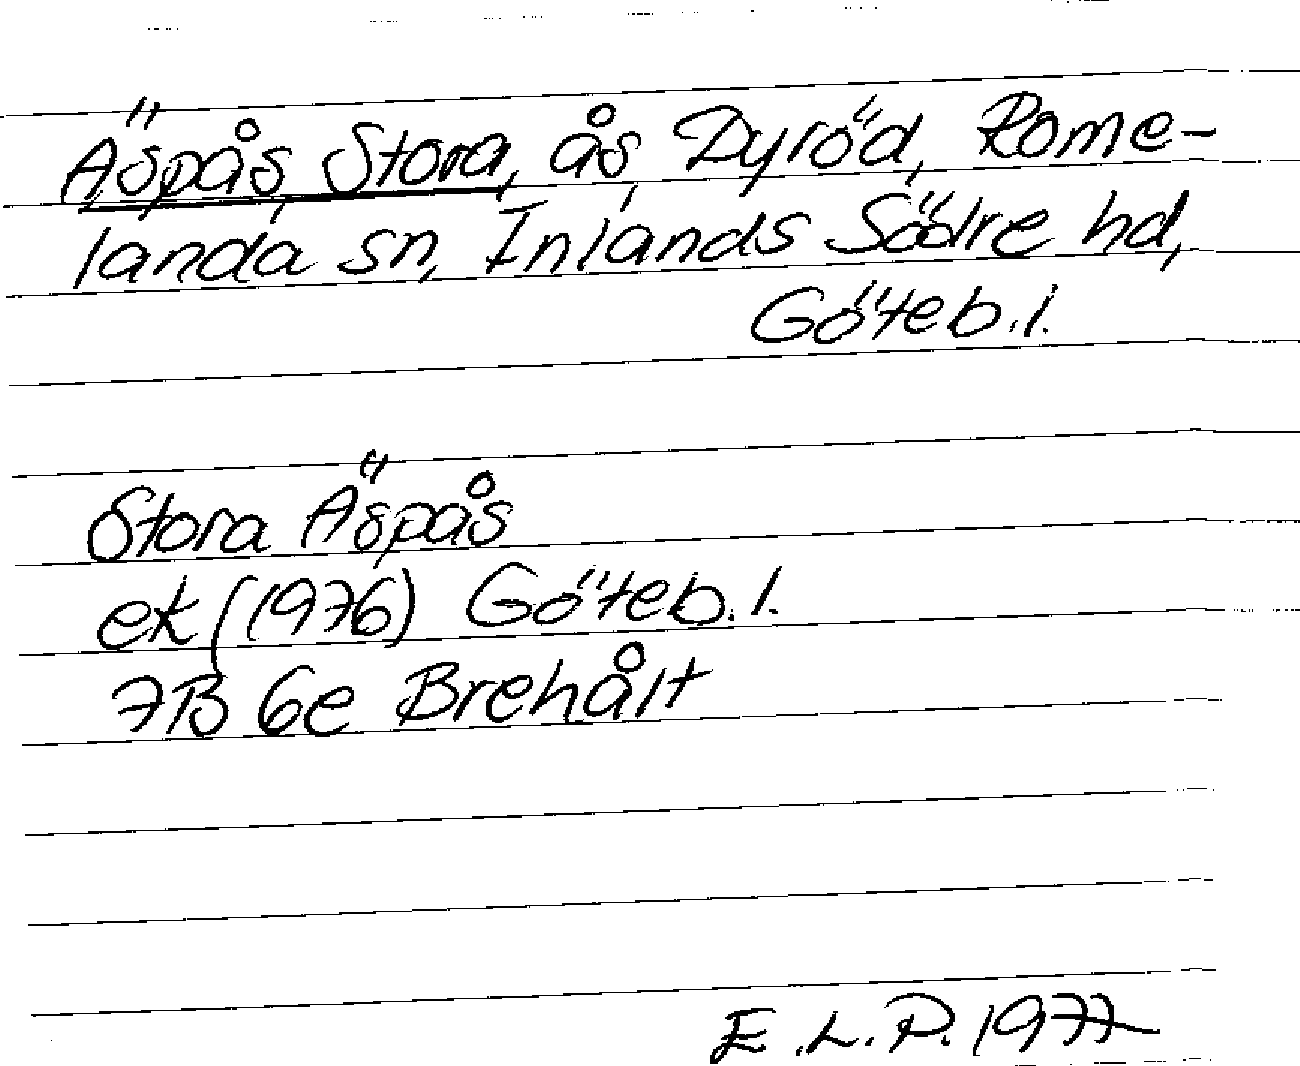 Äspås Stora, ås Dyröd, Rome-
landa sn, Inlands Södre hd,
Göteb. l.
Stora Äspås
ek (1976) Göteb. l.
7B 6e Brehålt
E.L.P. 1977